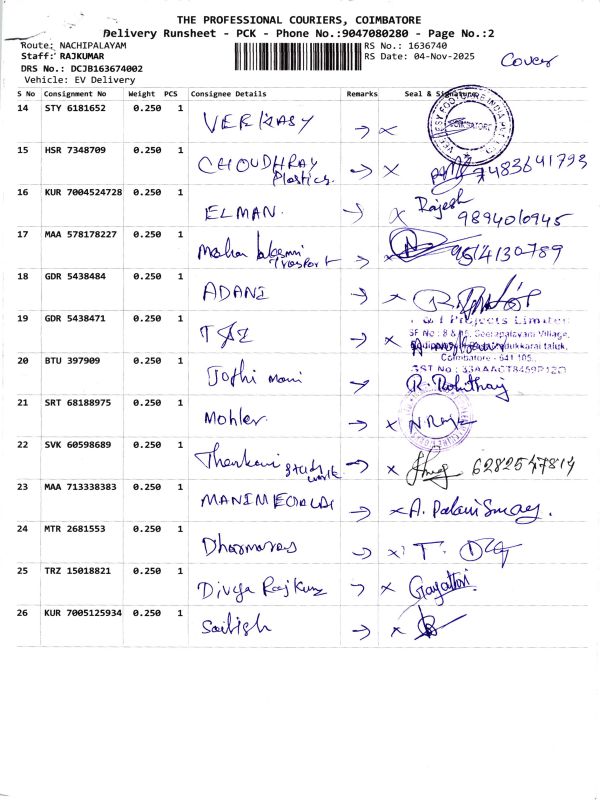 THE PROFESSIONAL COURIERS, COIMBATORE
Delivery Runsheet - PCK - Phone No.:9047080280 - Page No.:2
Route: NACHIPALAYAM RS No.: 1636740
Staff: RAJKUMAR RS Date: 04-Nov-2025 Cover
DRS No.: DCJB163674002
Vehicle: EV Delivery
S No Consignment No Weight PCS Consignee Details Remarks Seal & Signature
14 STY 6181652 0.250 1 → ×
COIMBATORE
15 HSR 7348709 0.250 1 CHOUDHRAY → × 7483641793
Plastics.
16 KUR 7004524728 0.250 1 ELMAN. → × Rajesh
9894010945
17 MAA 578178227 0.250 1 → × 9514130789
Transport
18 GDR 5438484 0.250 1 ADANI → ×
19 GDR 5438471 0.250 1 → Projects Limited
SF No : 8 &
Village,
taluk,
Coimbatore - 641 105.
GST No : 33AAACT8459P1ZO
20 BTU 397909 0.250 1 Jothi mani → R. Rohithay
21 SRT 68188975 0.250 1 Mohler → ×
22 SVK 60598689 0.250 1 → × 6282547814
work
23 MAA 713338383 0.250 1 → × A.
24 MTR 2681553 0.250 1 → × T.
25 TRZ 15018821 0.250 1 Divya Rajkumr → × Gayathri
26 KUR 7005125934 0.250 1 → ×